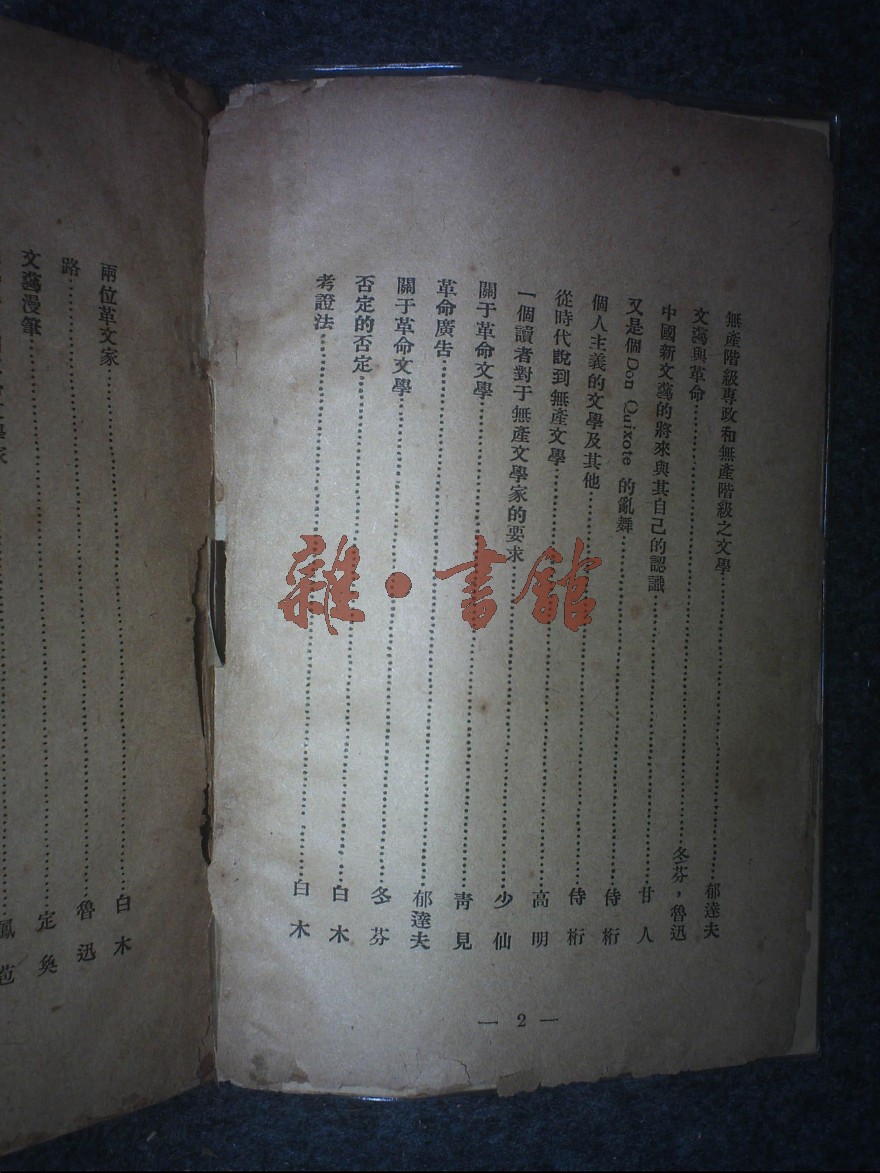 無產階級專政和無產階級之文學……郁達夫
文藝與革命……冬芬，魯迅
中國新文藝的將來與其自己的認識……甘人
又是個Don Quixote的亂舞……侍桁
個人主義的文學及其他……侍桁
從時代說到無產文學……高明
一個讀者對于無產文學家的要求……少仙
關于革命文學……青見
革命廣告……郁達夫
關于革命文學……冬芬
否定的否定……白木
考證法……白木
— 2 —
兩位革文家……白木
路……魯迅
文藝漫筆……定奐
雜·書館